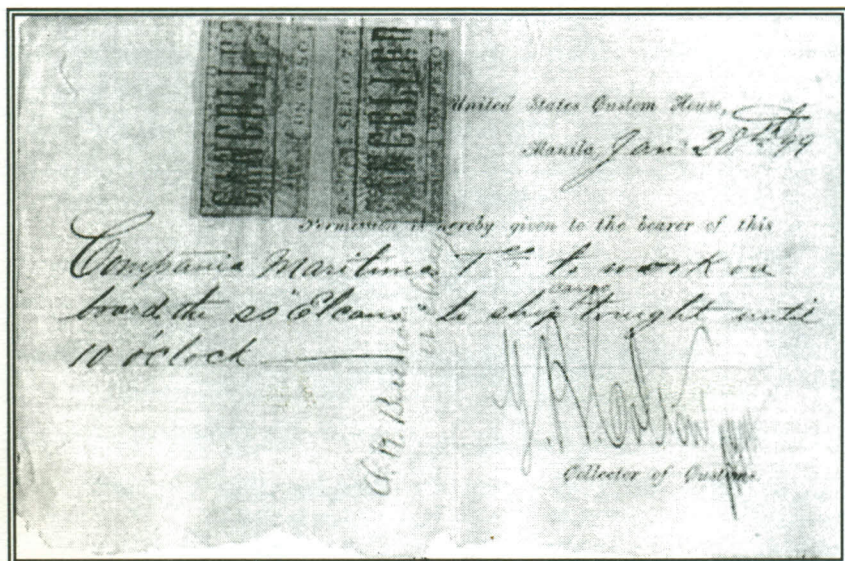 CANCELLED
SELLO 7
UN PESO
CANCELLED
UN PESO
United States Custom House,
Manila, Jan 28th 99
Permission is hereby given to the bearer of this
Compania Maritima to work on
board the SS "Elcano" to ship cargo tonight until
10 o'clock
Collector of Customs.